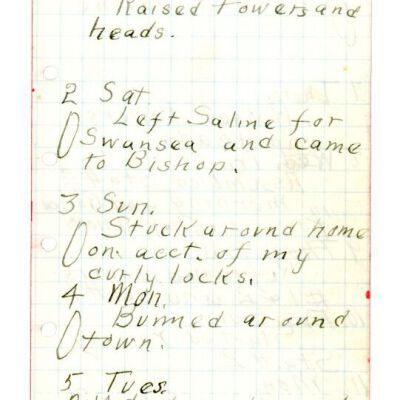 Raised towers and
heads.
2 Sat.
Left Saline for
Swansea and came
to Bishop.
3 Sun.
Stuck around home
on acct. of my
curly locks.
4 Mon.
Bummed around
town.
5 Tues.